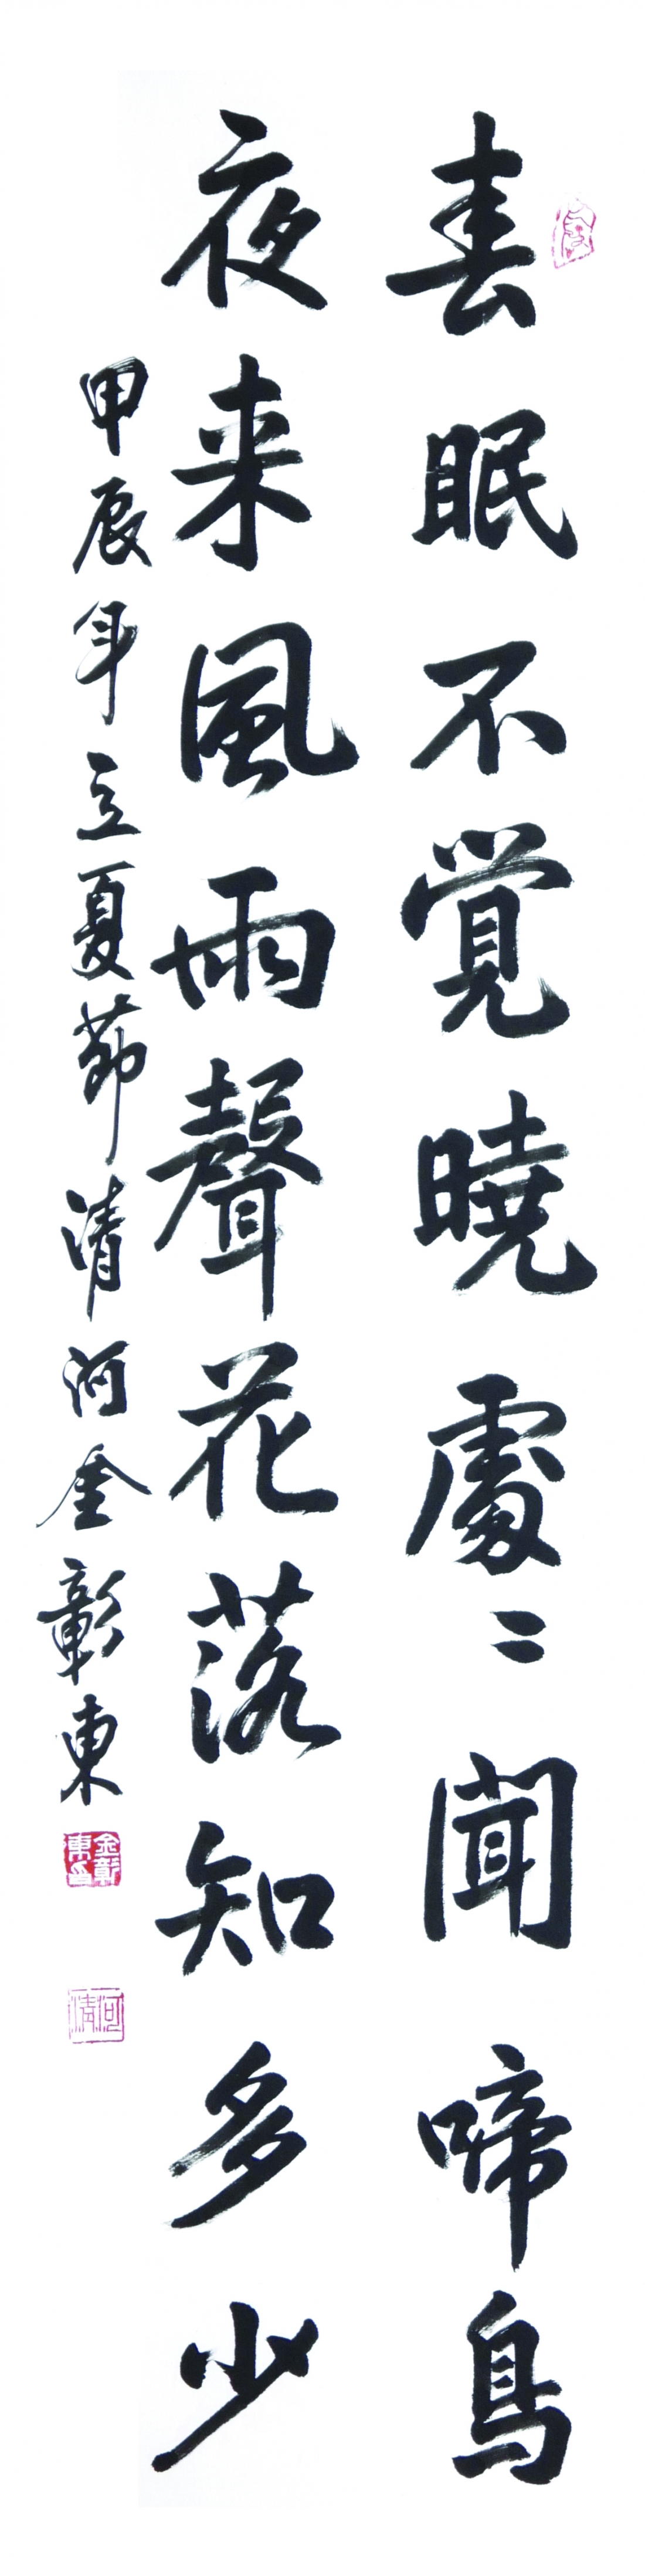 春眠不覚暁處〻聞啼鳥
夜来風雨聲花落知多少
甲辰年立夏節清河金彰東
金彰東印
清河